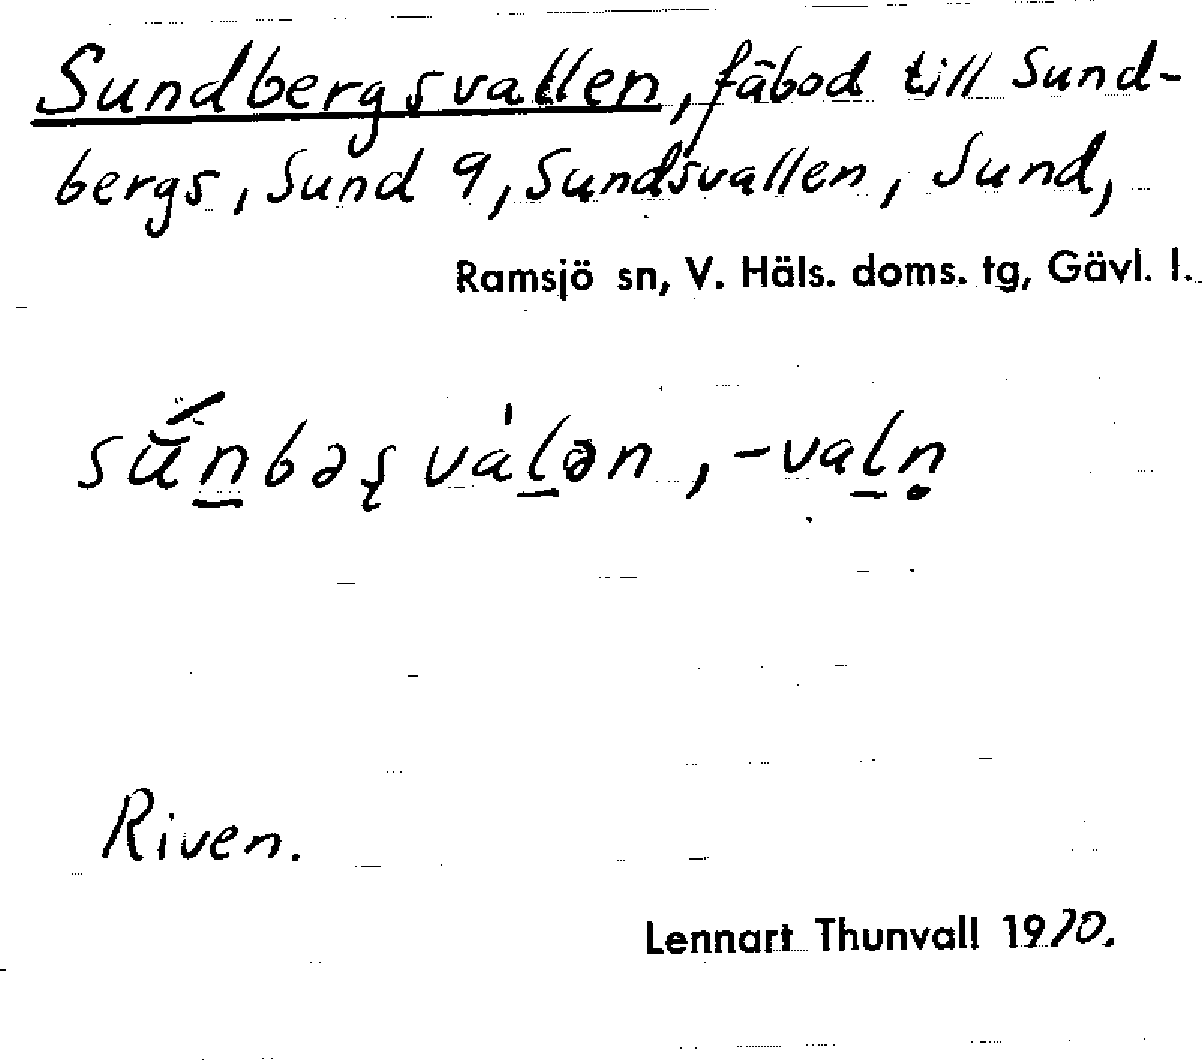 Sundbergsvallen, fäbod till Sund-
bergs, Sund 9, Sundsvallen, Sund,
Ramsjö sn, V. Häls. doms. tg, Gävl. l.
sʉ̄́n̲bəʂvàl̲ən, -val̲ṇ
Riven.
Lennart Thunvall 1970.